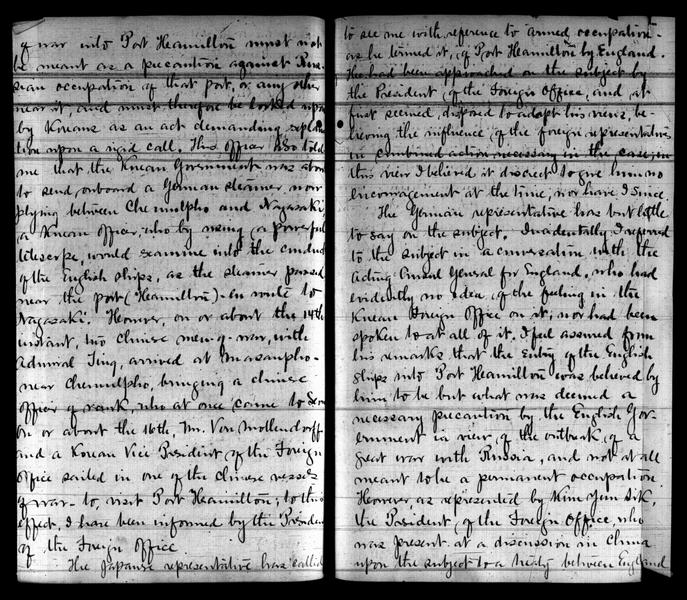 of war into Port Heamilton must not
be meant as a precaution against Rus-
sian occupation of that port, or any other
near it, and must therefore be looked upon
by Koreans as an act demanding
tion upon a rigid call. This officer also told
me that the Korean Government was about
to send, onboard a German steamer, now
plying between Chemulpho and Nagasaki,
a Korean officer, who by using a powerful
telescope, would examine into the conduct
of the English ships, as the steamer passed
near the port (Heamilton) en route to
Nagasaki. However, on or about the 14th
instant, two Chinese men-of-war, with
Admiral Ting, arrived at Masanpho-
near Chemulpho, bringing a Chinese
officer of rank, who at once came to Seoul
On or about the 16th, Mr. Von Mollendorff
and a Korean Vice President of the Foreign
Office sailed in one of the Chinese vessels
of war- to visit Port Heamilton; to this
effect, I have been informed by the President
of the Foreign Office
The Japanese representative has called
to see me with reference to armed occupation-
as he termed it, of Port Heamilton by England.
He had been approached on the subject by
the President of the Foreign Office, and at
first seemed disposed to adopt his views, be-
lieving the influence of the foreign representatives
in combined action necessary in the case; in
this view I believed it discreet to give him no
encouragement at the time, nor have I since.
The German representative has but little
to say on the subject. Incidentally I referred
to the subject in a conversation with the
Acting Consul General for England, who had
evidently no idea of the feeling in the
Korean Foreign Office on it; nor had been
spoken to at all of it. I feel assured from
his remarks that the entry of the English
ships into Port Heamilton was believed by
him to be but what was deemed a
necessary precaution by the English Gov-
ernment in view of the outbreak of a
great war with Russia, and not at all
meant to be a permanent occupation.
However, as represented by Kim Yun Sik,
the President of the Foreign Office, who
was present at a discussion in China
upon the subject to a treaty between England